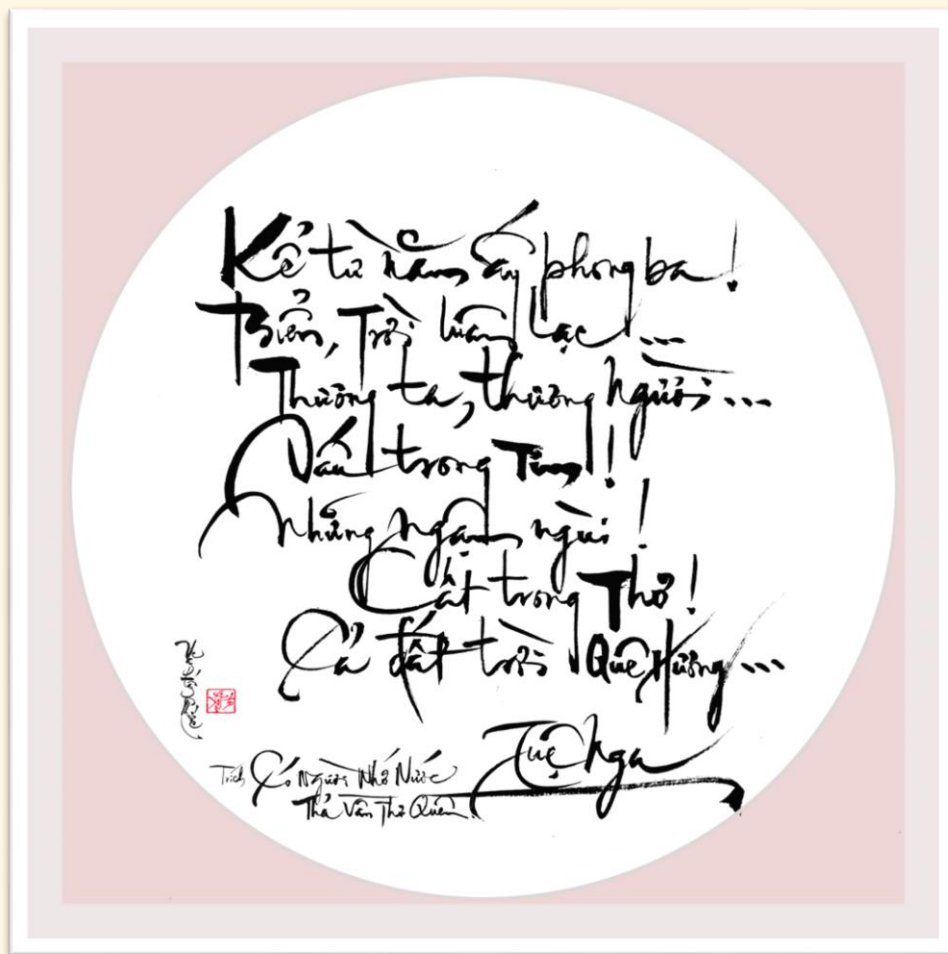 Kể từ năm ấy phong ba!
Biển, Trời luân lạc...
Thương ta, thương người...
Dấu trong Tim!
Những ngậm ngùi!
Cất trong Thơ!
Cả đất trời Quê Hương...
Tuệ Nga
Trích Có Người Nhớ Nước
Thả Vần Thơ Quên